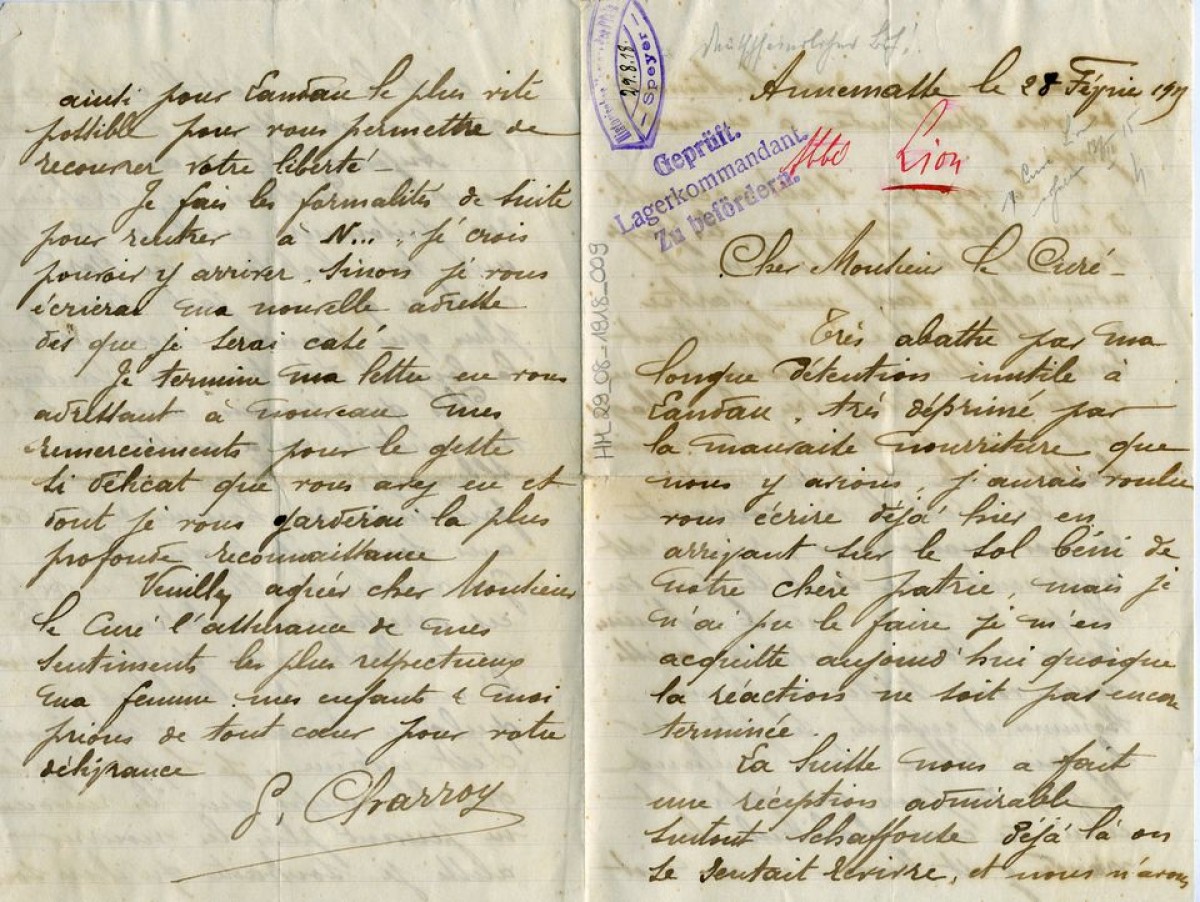 29.8.18.
Speyer
Geprüft.
Lagerkommandant.
Zu befördern.
Annemasse le 28 Février 191
Abbé Lion
Cher Monsieur le Curé –
Très abattu par ma
longue détention inutile à
Landau, très déprimé par
la mauvaise nourriture que
nous y avions, j'aurais voulu
vous écrire déjà hier en
arrivant sur le sol béni de
notre chère patrie, mais je
n'ai pu le faire je m'en
acquitte aujourd'hui quoique
la réaction ne soit pas encore
terminée.
La Suisse nous a fait
une réception admirable
surtout Schaffouse déjà là on
se sentait revivre, et nous n'avons
HH_29_08-1918_009
ainsi pour Landau le plus vite
possible pour vous permettre de
recouvrer votre liberté –
Je fais les formalités de suite
pour rentrer à N... je crois
pouvoir y arriver, sinon je vous
écrierai ma nouvelle adresse
dès que je serai casé –
Je termine ma lettre en vous
adressant à nouveau mes
remerciements pour le geste
si délicat que vous avez eu et
dont je vous garderai la plus
profonde reconnaissance
Veuillez agréer cher Monsieur
le Curé l'assurance de mes
sentiments les plus respectueux
ma femme mes enfants & moi
prions de tout cœur pour votre
délivrance
G. Charroy